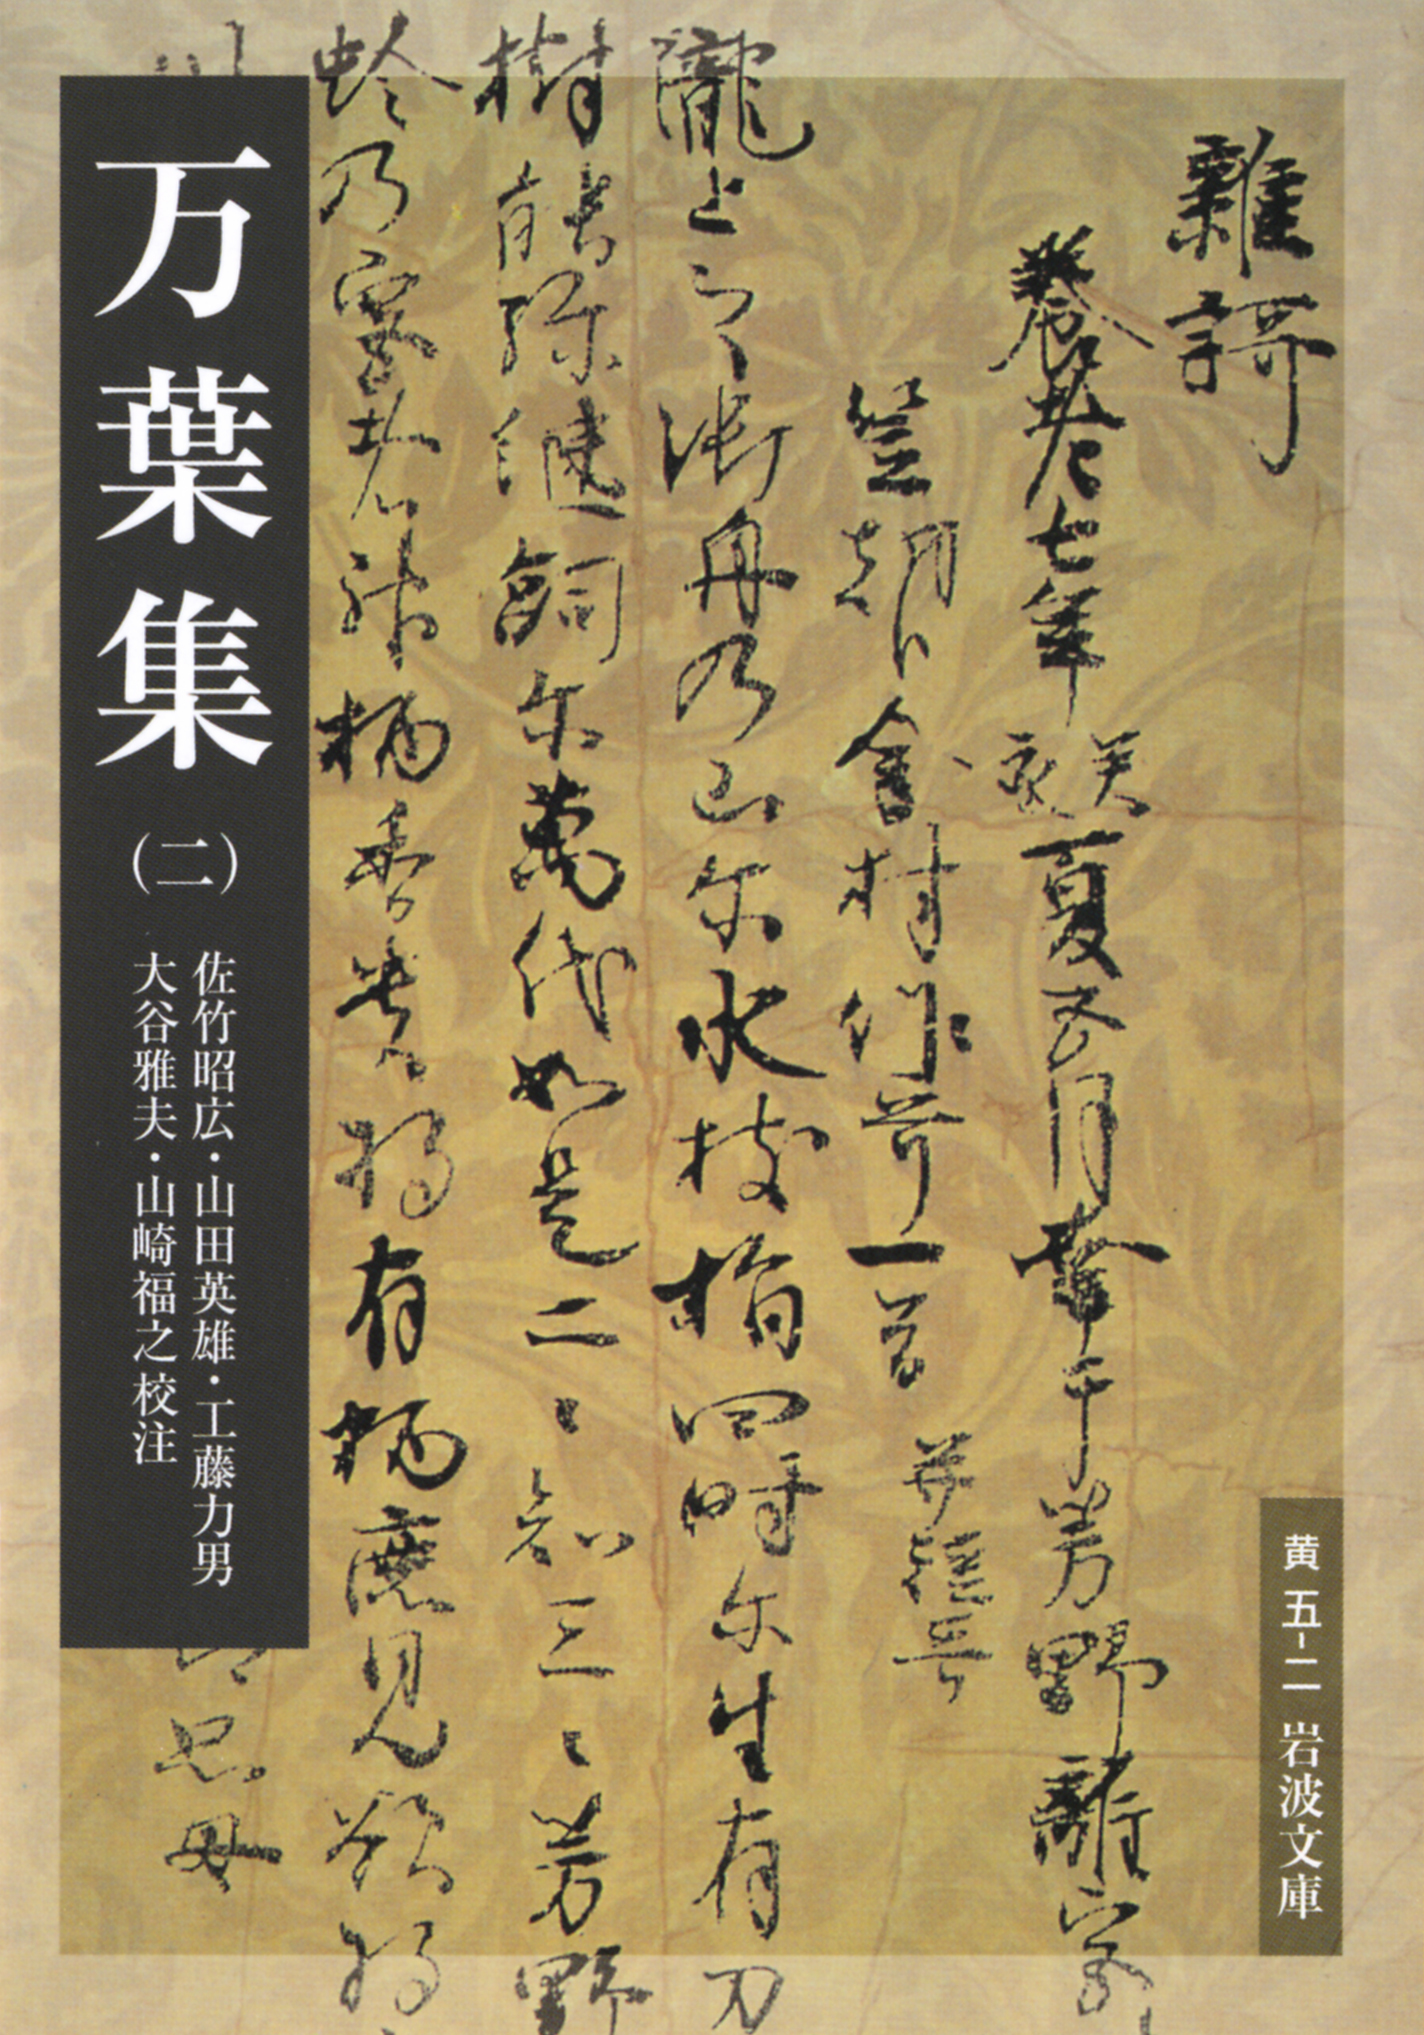 雜謌
養老七年癸亥夏五月幸于芳野離宮
笠朝臣金村作哥一首并短哥
瀧上之御舟乃山尓水枝指四時尓生有刀
樹能弥継嗣尓萬代如是二ミ知三ミ芳野
蛉乃宮者神柄香貴将有柄鹿見欲将
万葉集
(二)
佐竹昭広・山田英雄・工藤力男
大谷雅夫・山崎福之校注
黄五-二
岩波文庫